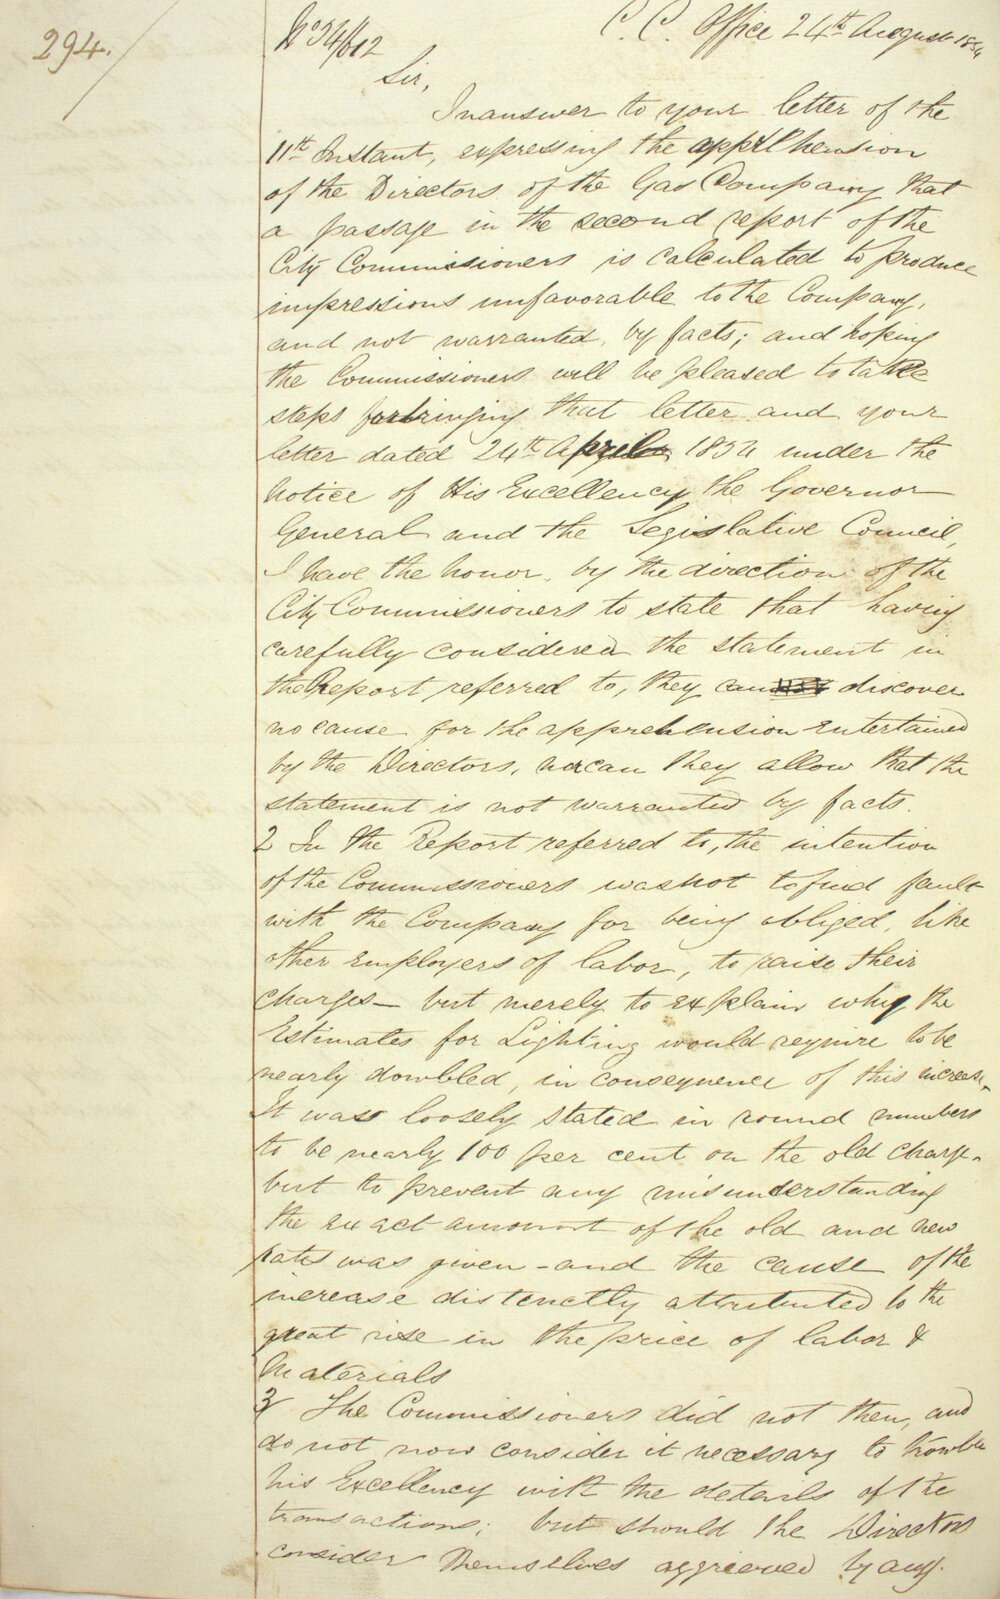 294.
No 54/612
C. C. Office 24th August 1854
Sir,
In answer to your letter of the
11th Instant, expressing the apprehension
of the Directors of the Gas Company that
a passage in the second report of the
City Commissioners is calculated to produce
impressions unfavorable to the Company,
and not warranted, by facts; and hoping
the Commissioners will be pleased to take
steps for bringing that letter and your
letter dated 24th April 1854 under the
notice of His Excellency the Governor
General and the Legislative Council,
I have the honor, by the direction of the
City Commissioners to state that having
carefully considered the statement in
the Report referred to, they can discover
no cause for the apprehension entertained
by the Directors, nor can they allow that the
statement is not warranted by facts.
2 In the Report referred to, the intention
of the Commissioners was not to find fault
with the Company for being obliged, like
other employers of labor, to raise their
charges— but merely to explain why the
Estimates for Lighting would require to be
nearly dowbled, in consequence of this increase.
It was loosely stated in round numbers
to be nearly 100 per cent on the old charge-
but to prevent any misunderstanding
the exact amount of the old and new
rates was given - and the cause of the
increase distenctly attributed to the
great rise in the price of labor &
Materials
3 The Commissioners did not then, and
do not now consider it necessary to trowble
his Excellency with the details of the
transactions; but should the Directors
consider themselves aggrieved by any.